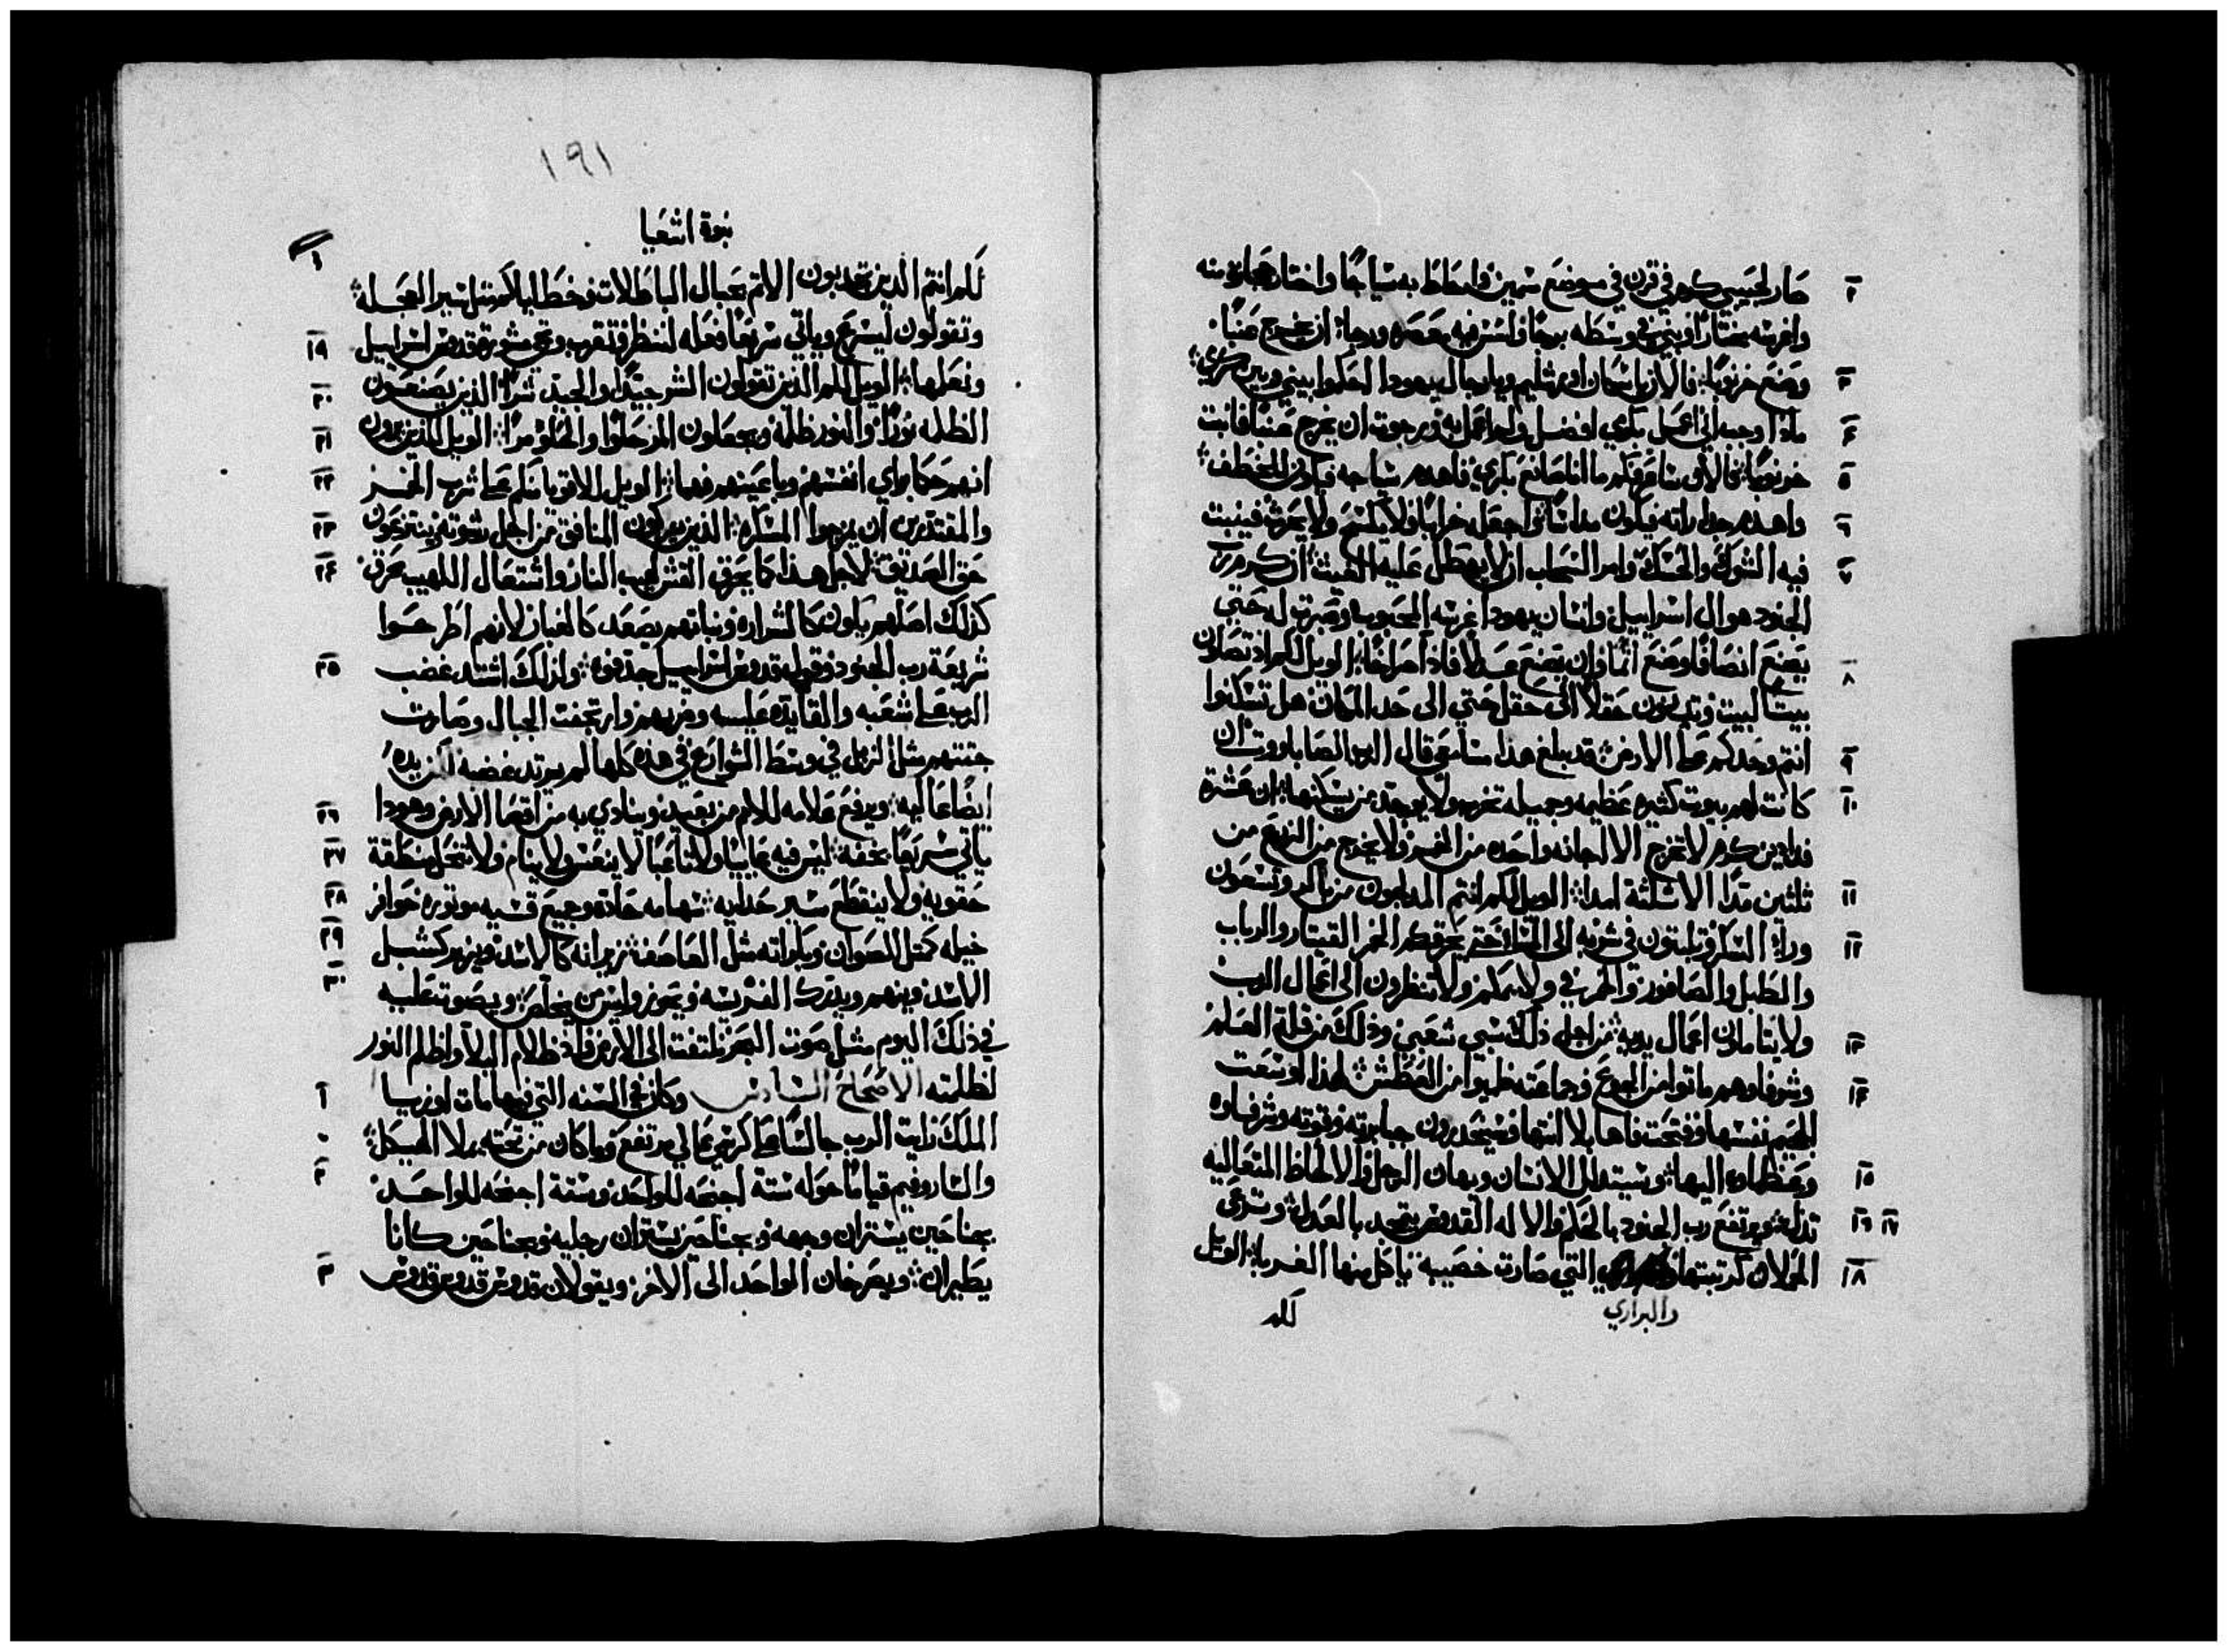 صار لحبيبي كرم في قرن في موضع سمين فاحاط به سياجًا واختار حجارة منه
وغرسه مختارًا وبني في وسطه برجًا واسس فيه معصره ورجا ان يخرج عنبًا
وصنع خرنوبًا فالان يا سكان اورشليم ويا رجال يهودا احكموا بيني وبين كرمي
ماذا وجب اني اعمل بكرمي افضل ولم اعمل به ورجوت ان يخرج عنبًا فانبت
خرنوبًا فالان ساعرفكم ما انا صانع بكرمي فاهدم سياجه فيكون للخطف
واهدم جداراته فيكون مداسًا اجعل خرابًا ولا يكسح ولا يحرث فينبت
فيه الشوك والحسك وامر السحاب ان لا يهطل عليه الغيث ان كرم رب
الجنود هو ال اسراييل وانسان يهودا غرسه المحبوب وصبرت له حتي
يصنع انصافًا وصنع اثمًا وان يصنع عدلًا فاذا صراخًا الويل لكم اذ تصلون
بيتًا لبيت وتدنون حقلًا الى حقل حتي الى حد المكان هل تسكنوا
انتم وحدكم على الارض قد بلغ هذا مسامعي قال الرب الصاباووت ان
كانت لهم بيوت كثيره عظيمه وجميله تخرب ولا يوجد من يسكنها ان عشرة
فدادين كرم لا تخرج الا اجانه واحده من الخمر ولا يخرج من الزرع من
ثلثين مدًا الا ثلثة امداد الويل لكم انتم المدلجون من باكر وتسعون
ورآ السكر وتلبثون في شربه الى المسا حتي يحرقكم الخمر القيتار والرباب
والطبل والصافور والخمر في ولايمكم ولا تنظرون الى اعمال الرب
ولا يتاملون اعمال يديه من اجل ذلك سبي شعبي وذلك من قلة العلم
وشرفاوهم ماتوا من الجوع وجماعته خابوا من العطش لهذا اوسعت
الجحيم نفسها وفتحت فاها بلا انتها وسينحدرون جبابرته وقوته وشرفاوه
وعظماوه اليها وسيتدلل الانسان ويهان الرجل والالحاظ المتعاليه
تذل ويرتفع رب الجنود بالحكم والاله القدوس يتمجد بالعدل وترعى
الحملان كرتبتها التي صارت خصيبة ياكل منها الغربا الويل
والبراري
لكم
١٩١
نبوة اشعيا
لكم انتم الذين تجذبون الاثم بحبال الباطلات وخطاياكم مثل سير العجله
وتقولون ليسرع وياتي سريعًا فعله لننظر وتقرب وتجي مشورة قدوس اسراييل
ونعلمها الويل لكم الذين تقولون الشر جيدًا والجيد شرًا الذين يصنعون
الظلمه نورًا والنور ظلمة ويجعلون المر حلوًا والحلو مرًا الويل للذين يرون
انهم حكما براي انفسهم وباعينهم فهما الويل للاقويا منكم على شرب الخمر
والمقتدرين ان يمزجوا المسكره الذين يزكون المنافق من اجل رشوته وينتزعون
حق الصديق لاجل هذا كما يحرق القش لهيب النار واشتعال اللهيب يحرق
كذلك اصلهم يكون كالشراره ونباتهم يصعد كالغبار لانهم اطرحوا
شريعة رب الجنود وقول قدوس اسراييل جدفوه ولذلك اشتد غضب
الرب على شعبه والقا يده عليه وضربهم وارتجفت الجبال وصارت
جثتهم مثل الزبل في وسط الشوارع في هذه كلها لم يرتد غضبه لكن يده
ايضًا عاليه ويرفع علامه للامم من بعيد وينادي به من اقصا الارض وهوذا
ياتي سريعًا بخفه ليس فيه عاييًا ولا تاعبًا لا ينعس ولا ينام ولا تنحل منطقة
حقويه ولا ينقطع سير حدايه سهامه حادة وجميع قسيه موتوره حوافر
خيله كمثل الصوان وبكراته مثل العاصف زيرانه كالاسد ويزير كشبل
الاسد وينهم ويدرك الفريسه ويحوز وليس من يخلص ويصوت عليه
في ذلك اليوم مثل صوت البحر نلتفت الى الارض فاذا ظلام البلا واظلم النور
لظلمته الاصحاح السادس وكان في السنه التي فيها مات اوزيا
الملك رايت الرب جالسًا على كرسي عالي مرتفع وما كان من تحته يملا الهيكل
والساروفيم قيامًا حوله ستة اجنحه للواحد وستة اجنحه للواحد
بجناحين يستران وجهه وبجناحين يستران رجليه وبجناحين كانا
يطيران ويصرخان الواحد الى الاخر ويقولان قدوس قدوس قدوس